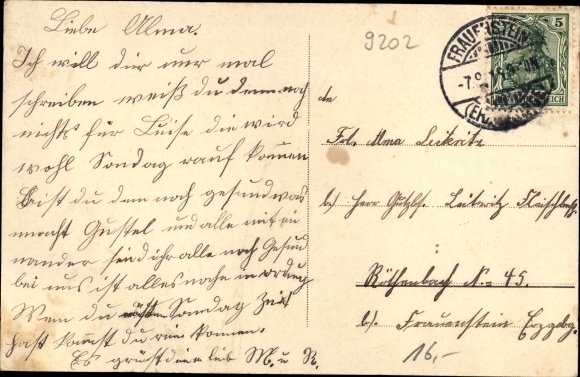 Liebe Alma.
Ich will dir nur mal
schreiben weiß du den noch
nichts für Luise die wird
wohl Sondag rauf kommen
Bist du dem noch gesund was
macht Gustel und alle mit ein
nander seid ihr alle noch Gesund
bei uns ist alles noch in ordung
Wen du Sondag Zeit
hast kannst du rein kommen.
Es grüst M. u R.
9202
5
FRAUENSTEIN
(ERZGEB.)
REICH
An
Frl. Alma Leikritz
b/ Herr Gutsbs. Leikritz
Röthenbach No 49.
b/. Frauenstein Erzgebg.
16,-